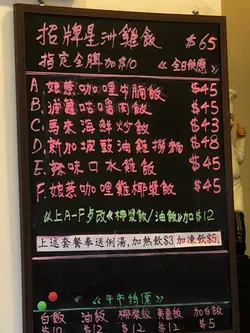 招牌星洲雞飯 $65
指定全髀加$10 《全日供應》
A. 娘惹咖哩牛腩飯 $45
B. 滷肉飯 $45
C. 馬來海鮮炒飯 $43
D. 新加坡豉油雞撈麵 $48
E. 辣味口水雞飯 $45
F. 娘惹咖哩雞椰漿飯 $45
以上A-F步改《椰漿飯/油飯》加$12
上述套餐奉送例湯,加熱飲$3 加凍飲$5.
《午市特價》
白飯 油飯 椰漿飯 加白飯
$10 $12 $12 $5